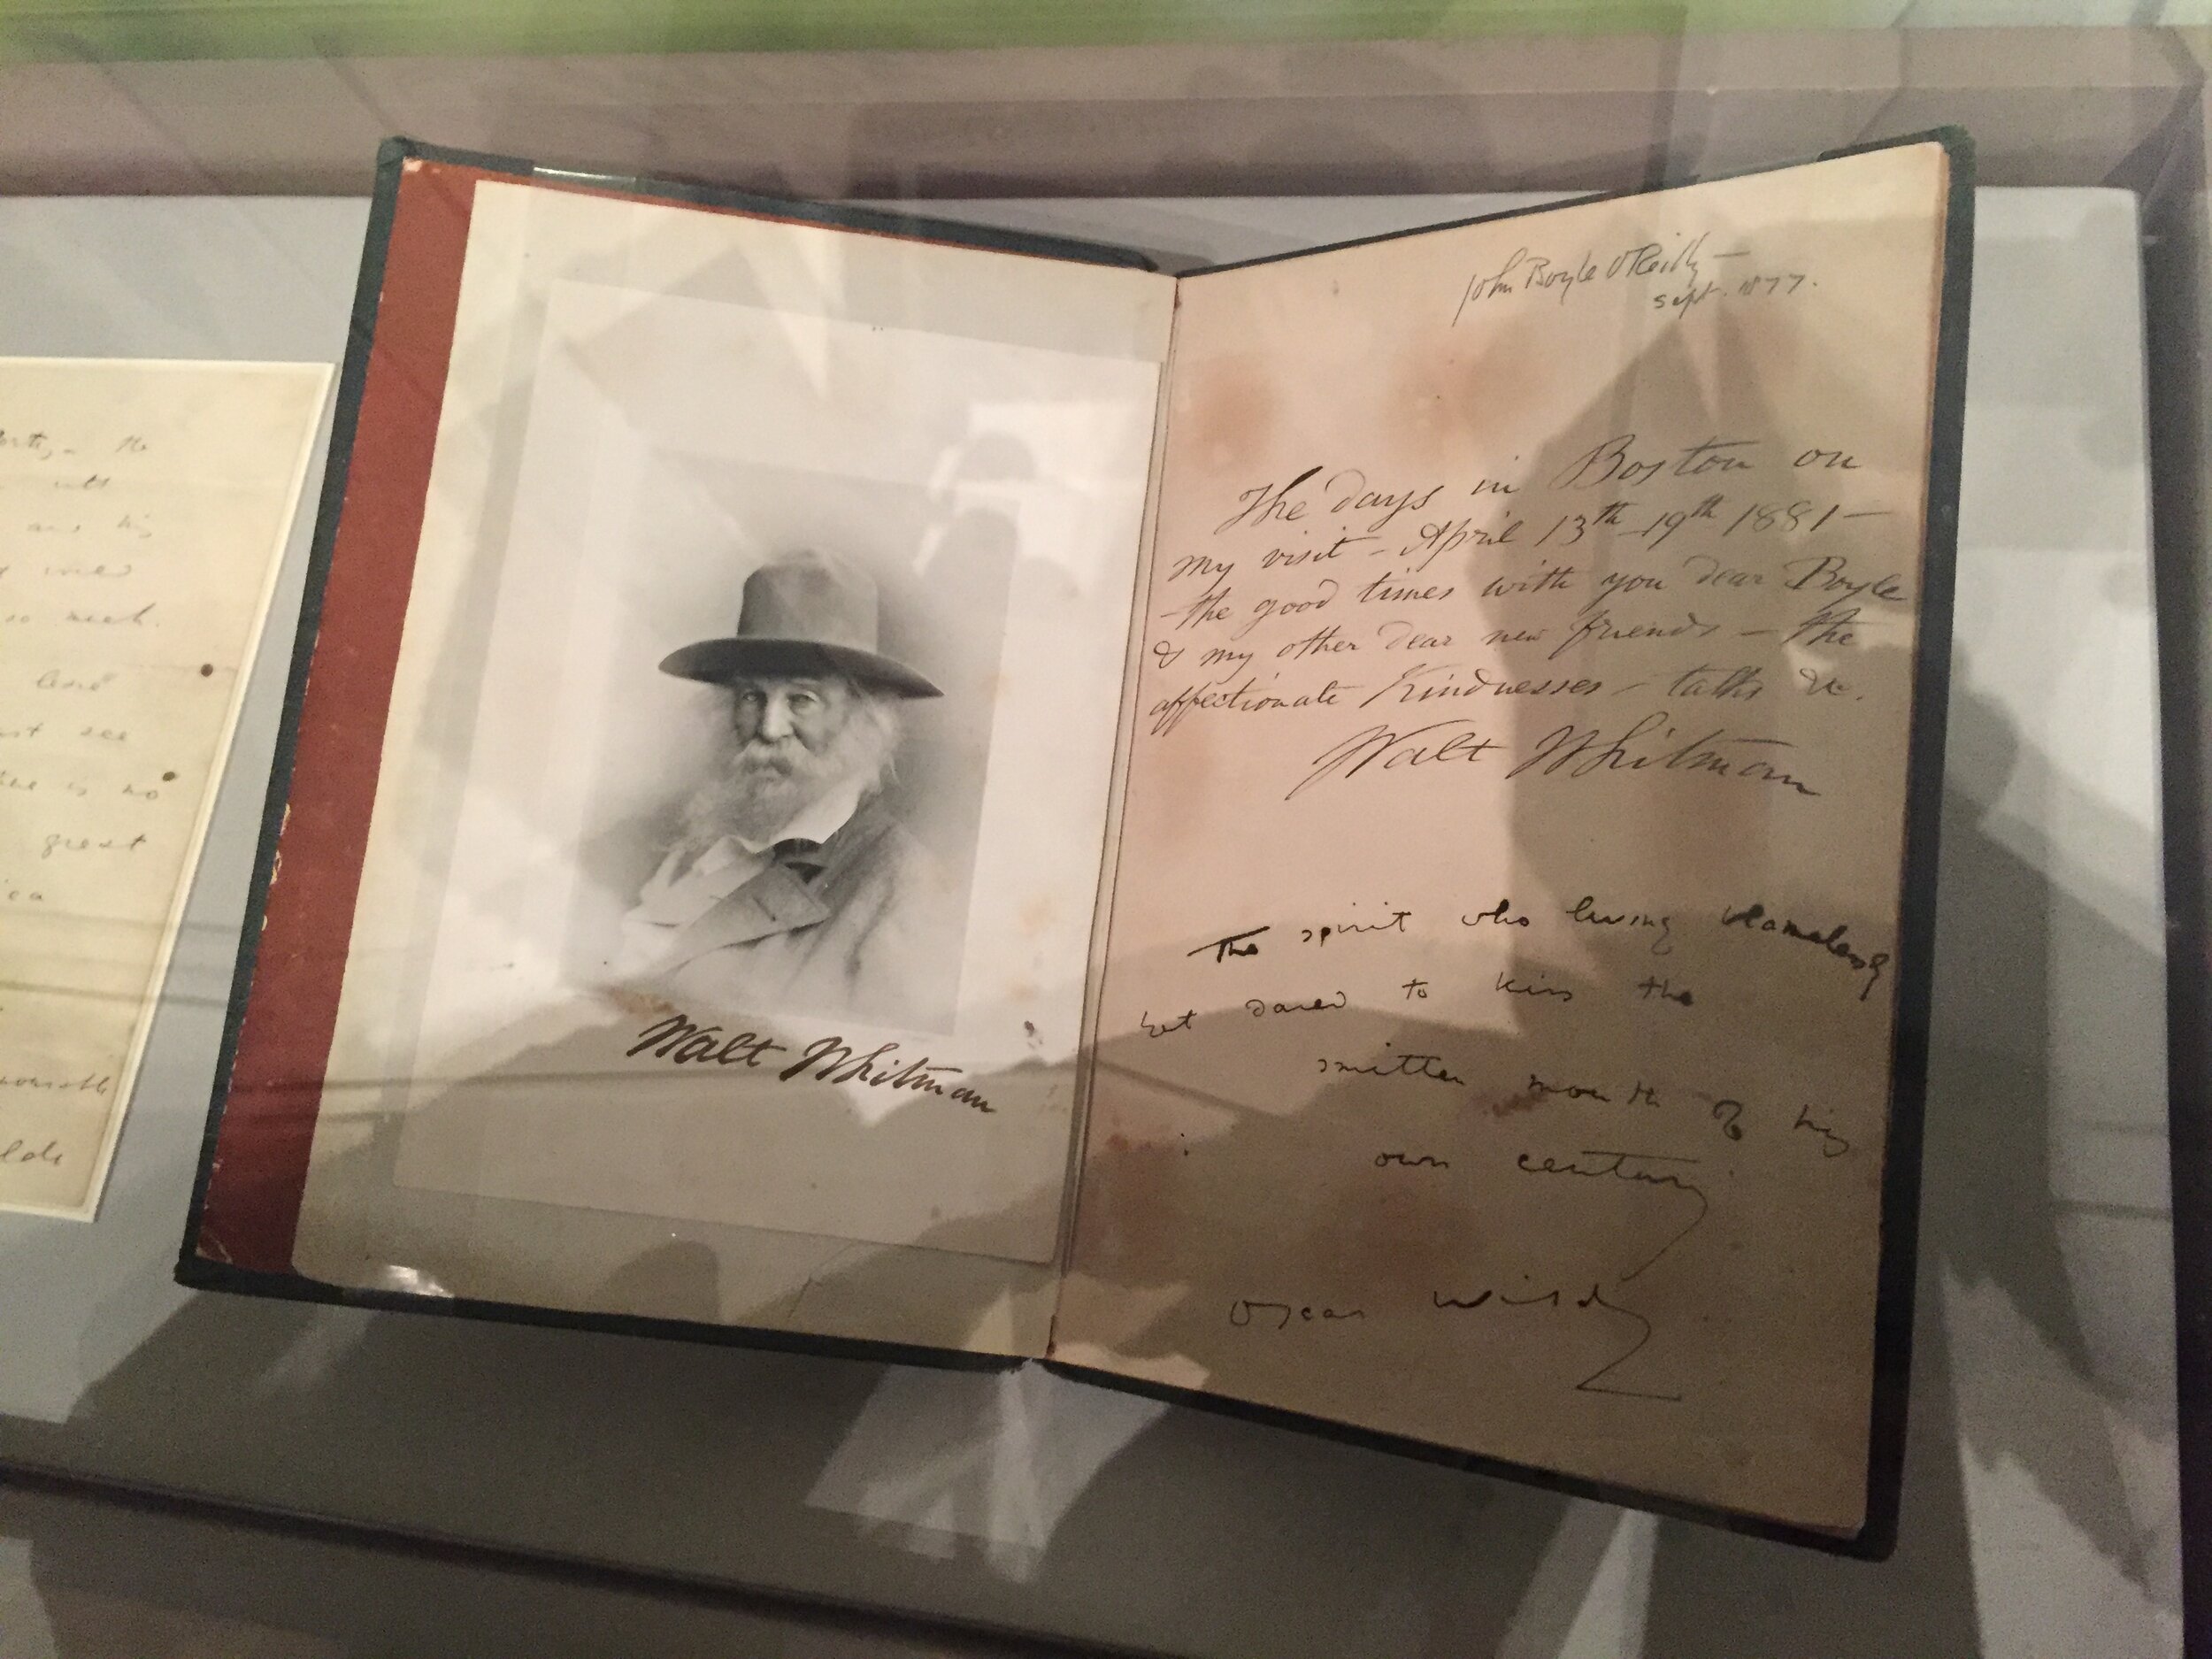 so much.
see
is no
great
Walt Whitman
John Boyle O'Reilly —
Sept. 1877.
The days in Boston on
my visit – April 13th – 19th 1881 –
– the good times with you dear Boyle
& my other dear new friends – the
affectionate kindnesses – talks &c.
Walt Whitman
The spirit who living blamelessly
but dared to kiss the
smitten mouth of his
own century
Oscar Wilde